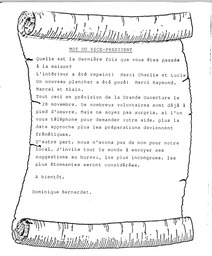 MOT DU VICE-PRESIDENT
Quelle est la dernière fois que vous êtes passés
à la maison?
L'intérieur a été repeint: Merci Charlie et Lucie
Un nouveau plancher a été posé: Merci Raymond,
Marcel et Alain.
Tout ceci en prévision de la Grande Ouverture le
28 novembre. De nombreux volontaires sont déjà à
pied d'oeuvre. Mais ne soyez pas surpris, si l'on
vous téléphone pour demander votre aide, plus la
date approche plus les préparations deviennent
frénétiques.
D'autre part, nous n'avons pas de nom pour notre
local. J'invite tout le monde à envoyer ses
suggestions au bureau, les plus incongrues, les
plus étonnantes seront considérées.
A bientôt,
Dominique Bernardet.